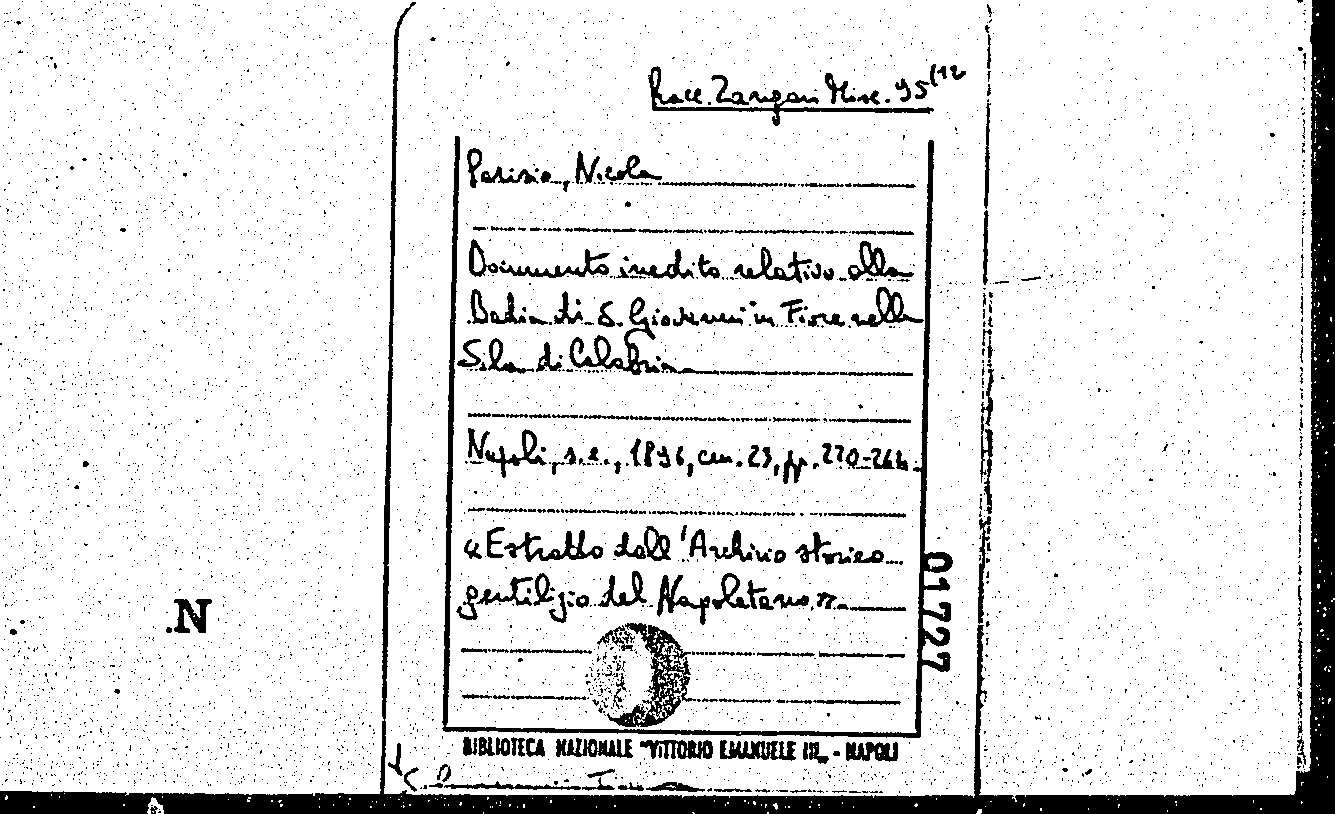 Racc. Zangari Misc. 95(12
Parisio, Nicola
Documento inedito relativo alla
Badia di S. Giovanni in Fiore nella
Sila di Calabria
Napoli, s.e., 1896, cm. 23, pp. 270-264.
«Estratto dall'Archivio storico
gentilizio del Napoletano».
01727
.N
BIBLIOTECA NAZIONALE "VITTORIO EMANUELE III„ - NAPOLI